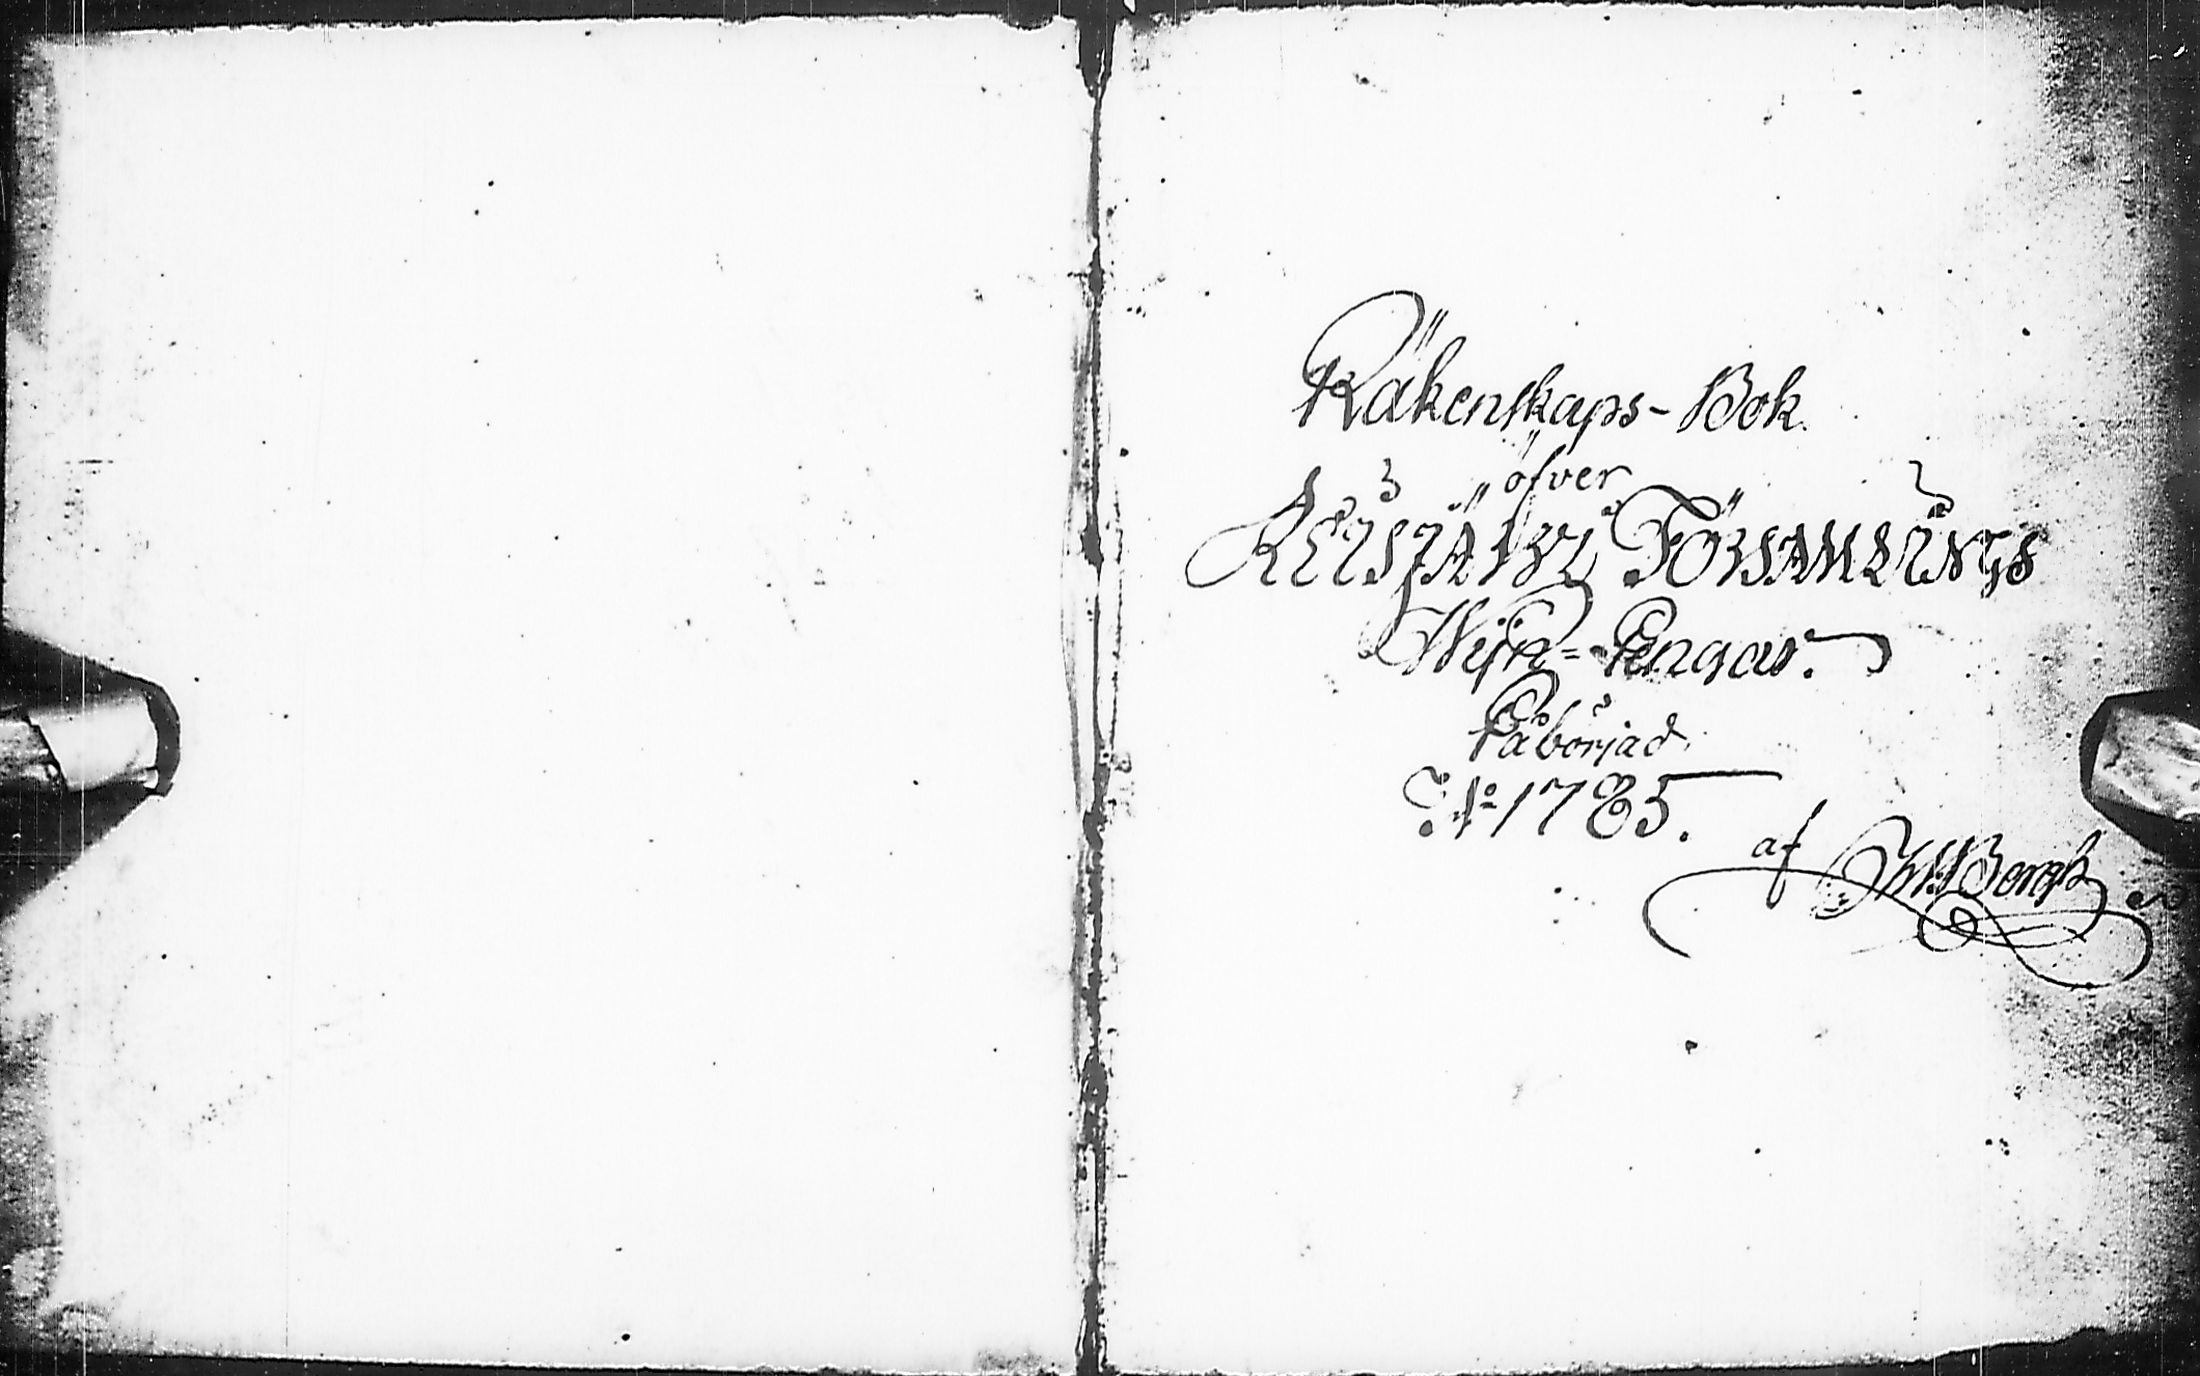 Räkenskaps-Bok
öfver
Reisjärvi Församlings
Wijn-Pengar.
Påbörjad
Åo 1785.
af Bergh